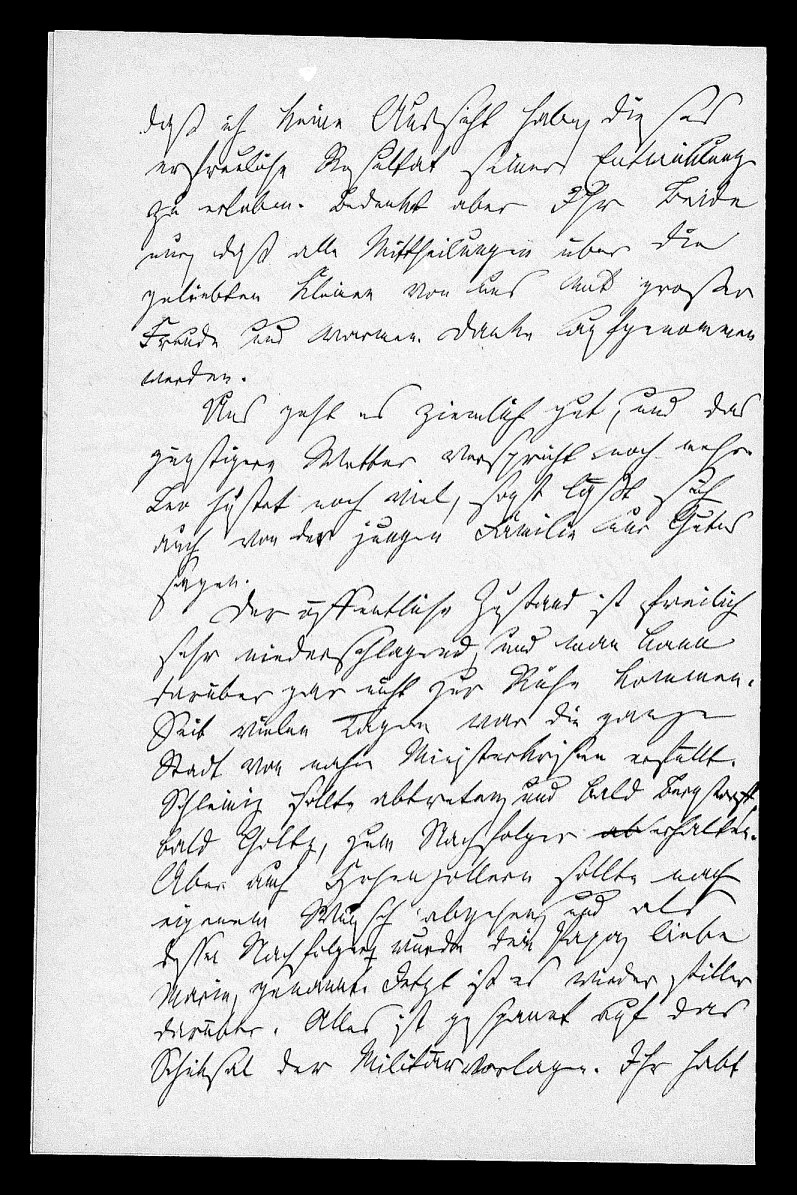 daß ich keine Aussicht habe, dieses
erfreuliche Resultat seiner Entwicklung
zu erleben. Bedenkt aber Ihr Beide
nur, daß alle Mittheilungen über die
geliebten Kleinen von uns mit großer
Freude und warmem Danke aufgenommen
werden.
Uns geht es ziemlich gut, und das
günstigere Wetter verspricht noch mehr.
Leo hustet noch viel, sonst läßt sich
auch von der jungen Familie nur Gutes
sagen.
Der öffentliche Zustand ist freilich
sehr niederschlagend, und man kann
darüber gar nicht zur Ruhe kommen.
Seit vielen Tagen war die ganze
Stadt von nahen Ministerkrisen erfüllt.
Schleinitz sollte abtreten, und bald
bald Goltz, zum Nachfolger erhalten.
Aber auch Hohenzollern sollte nach
eigenem Wunsch abgehen, und als
dessen Nachfolger wurde dein Papa, liebe
Marie, genannt. Jetzt ist es wieder stiller
darüber. Alles ist gespannt auf das
Schicksal der Militärvorlagen. Ihr habt